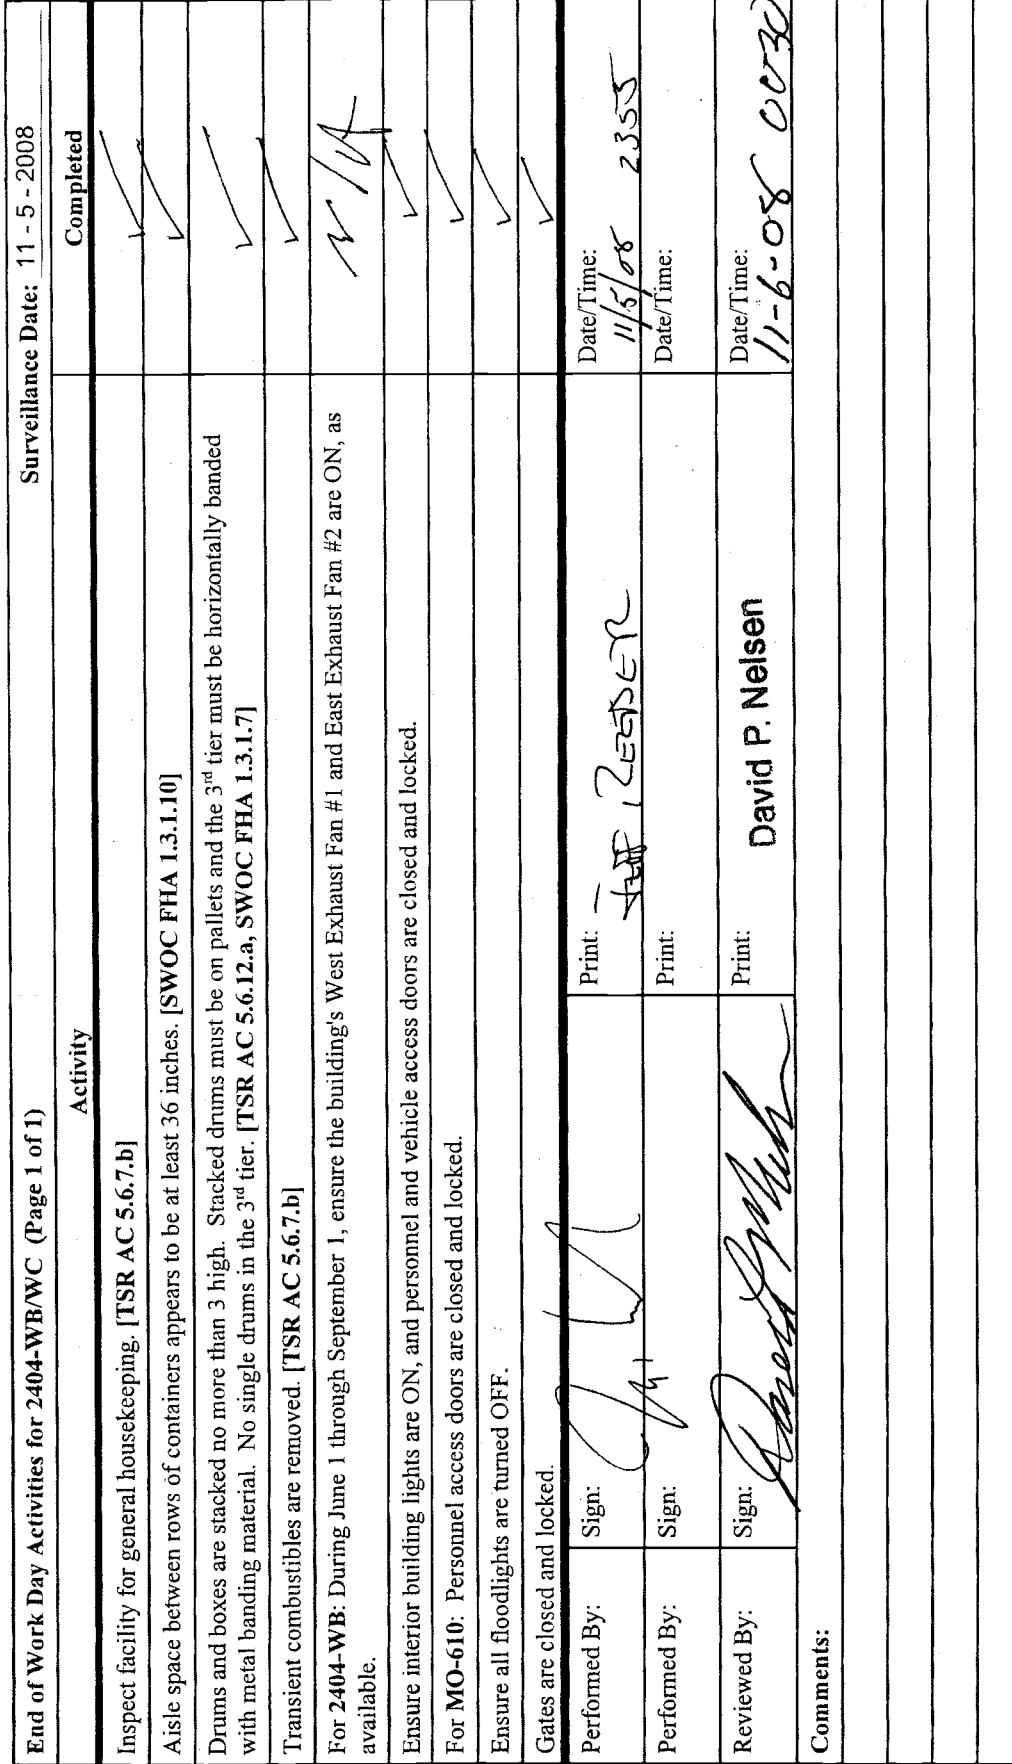 End of Work Day Activities for 2404-WB/WC (Page 1 of 1) Surveillance Date: 11-5-2008
Activity Completed
Inspect facility for general housekeeping. [TSR AC 5.6.7.b] ✓
Aisle space between rows of containers appears to be at least 36 inches. [SWOC FHA 1.3.1.10] ✓
Drums and boxes are stacked no more than 3 high. Stacked drums must be on pallets and the 3rd tier must be horizontally banded
with metal banding material. No single drums in the 3rd tier. [TSR AC 5.6.12.a, SWOC FHA 1.3.1.7] ✓
Transient combustibles are removed. [TSR AC 5.6.7.b] ✓
For 2404-WB: During June 1 through September 1, ensure the building's West Exhaust Fan #1 and East Exhaust Fan #2 are ON, as
available. N/A
Ensure interior building lights are ON, and personnel and vehicle access doors are closed and locked. ✓
For MO-610: Personnel access doors are closed and locked. ✓
Ensure all floodlights are turned OFF. ✓
Gates are closed and locked. ✓
Performed By: Sign: Print: Jeff REEDER Date/Time:
11/5/08 2355
Performed By: Sign: Print: Date/Time:
Reviewed By: Sign: Print: David P. Nelsen Date/Time:
11-6-08 0030
Comments: